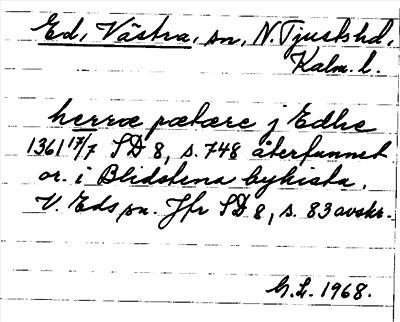 Ed, Västra, sn, N. Tjusts hd,
Kalm. l.
herræ pætære j Edhe
1361 17/7 SD 8, s. 748 återfunnet
or. i Blidstena bykista.
V. Eds sn. Jfr SD 8, s. 83 avskr.
G.L. 1968.